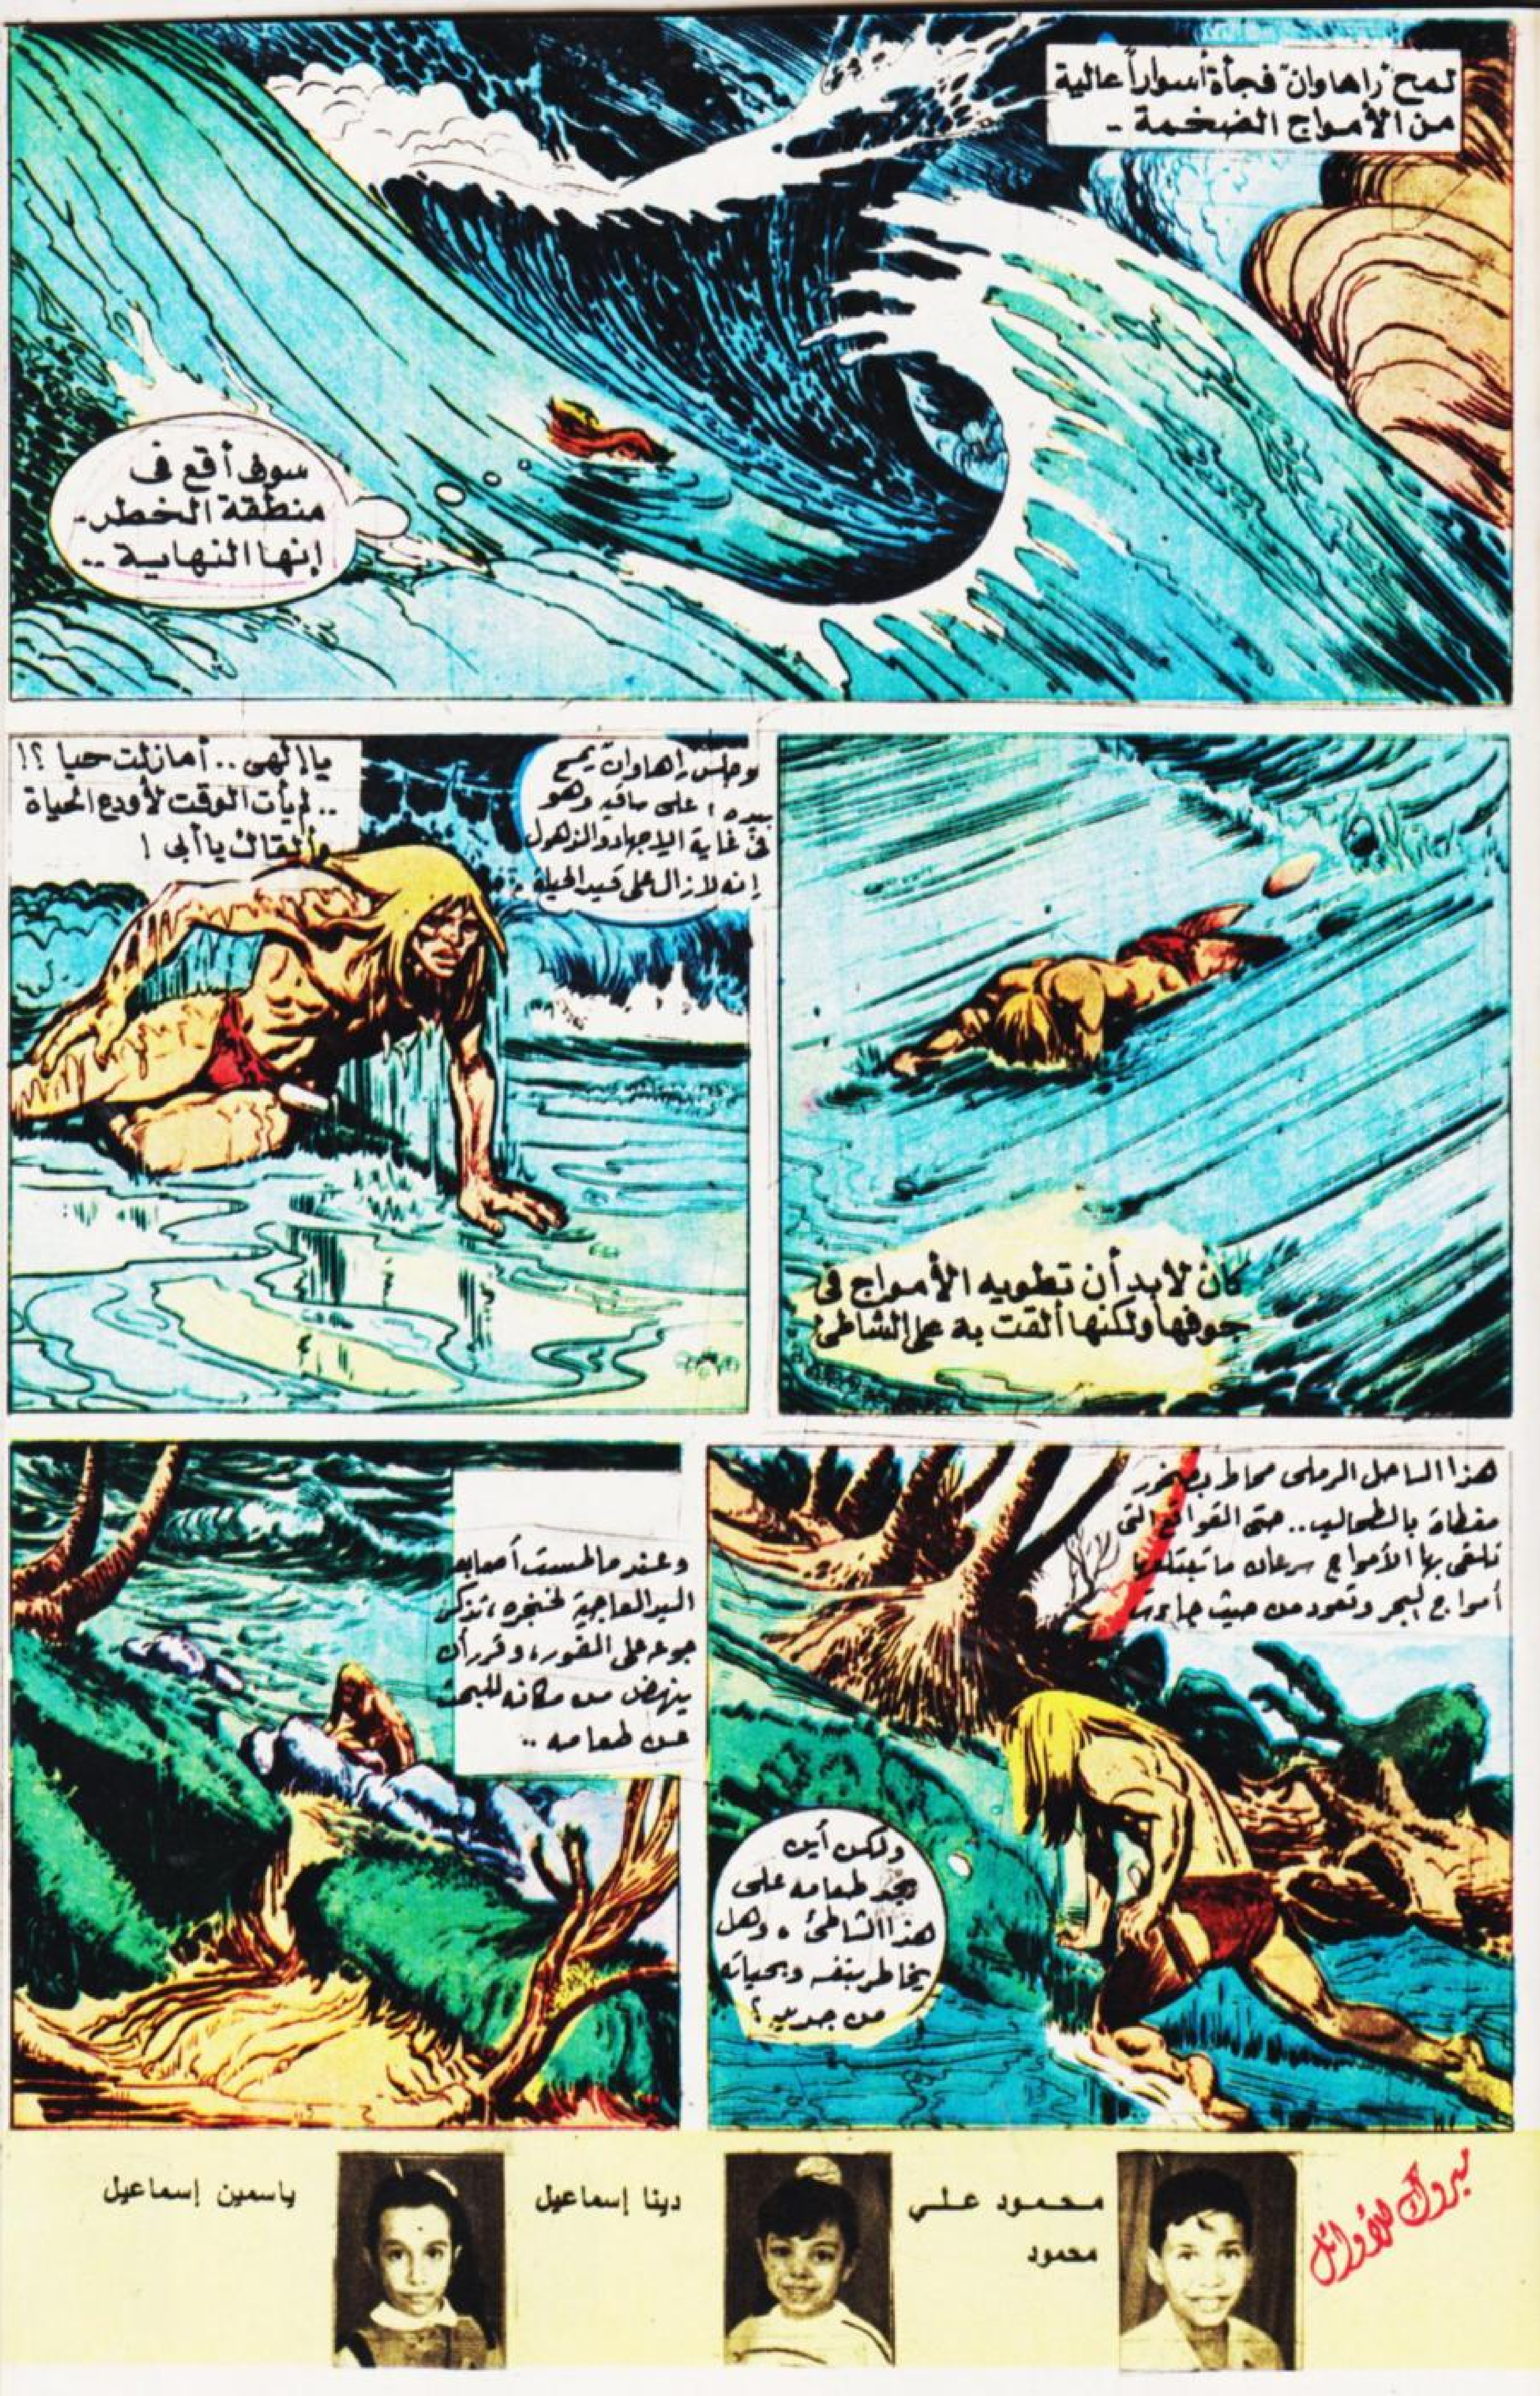 لمح "راهاوان" فجأة أسواراً عالية
من الأمواج الضخمة -
سوف أقع فى
منطقة الخطر -
إنها النهاية ..
كان لابد أن تطويه الأمواج فى
جوفها ولكنها ألقت به على الشاطئ
وجلس راهاوان يمسح
بيده على ساقيه وهو
فى غاية الاجهاد والذهول
إنه لازال على قيد الحياة
يا إلهى .. أمازلت حيا ؟!
.. لم يأت الوقت لأودع الحياة
وألقاك يا أبى !
هذا الساحل الرملى محاط بصخور
مغطاة بالطحالب .. حتى القواقع التى
تلقى بها الأمواج سرعان ما تبتلعها
أمواج البحر وتعود من حيث جاءت
ولكن أين
يجد طعامه على
هذا الشاطئ ، وهل
يخاطر بنفسه وبحياته
من جديد ؟
وعندما لمست أصابعه
اليد العاجية لخنجره ، تذكر
جوعه على الفور ، وقرر أن
ينهض من مكانه للبحث
عن طعامه ..
مبروك للأوائل
محمود علي
محمود
دينا إسماعيل
ياسمين إسماعيل